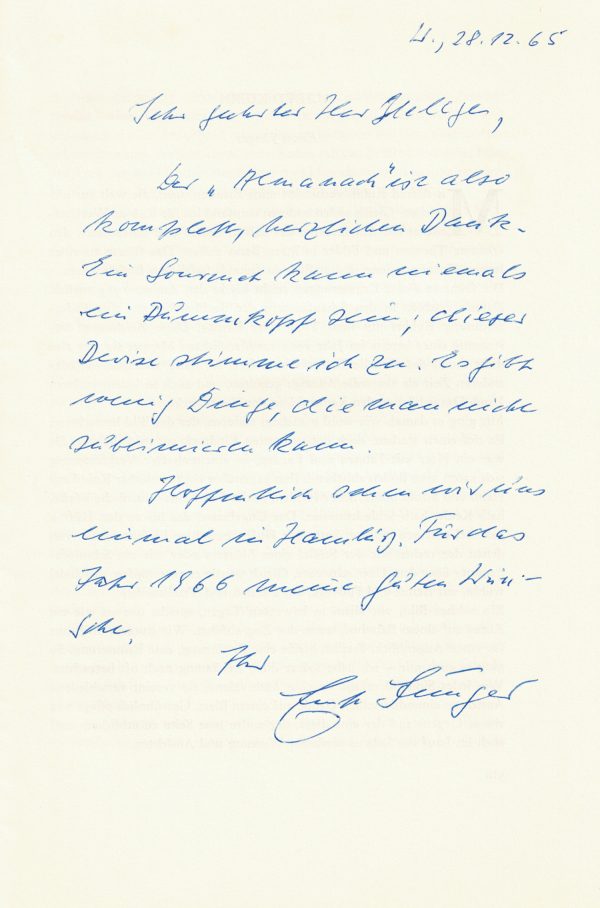 W., 28.12.65
Sehr geehrter Herr
Der „Almanach" ist also
komplett, herzlichen Dank.
Ein Gourmet kann niemals
ein Dummkopf sein; dieser
Devise stimme ich zu. Es gibt
wenig Dinge, die man nicht
sublimieren kann.
Hoffentlich sehen wir uns
einmal in Hamburg. Für das
Jahr 1966 meine guten Wün-
sche.
Ihr
Ernst Jünger